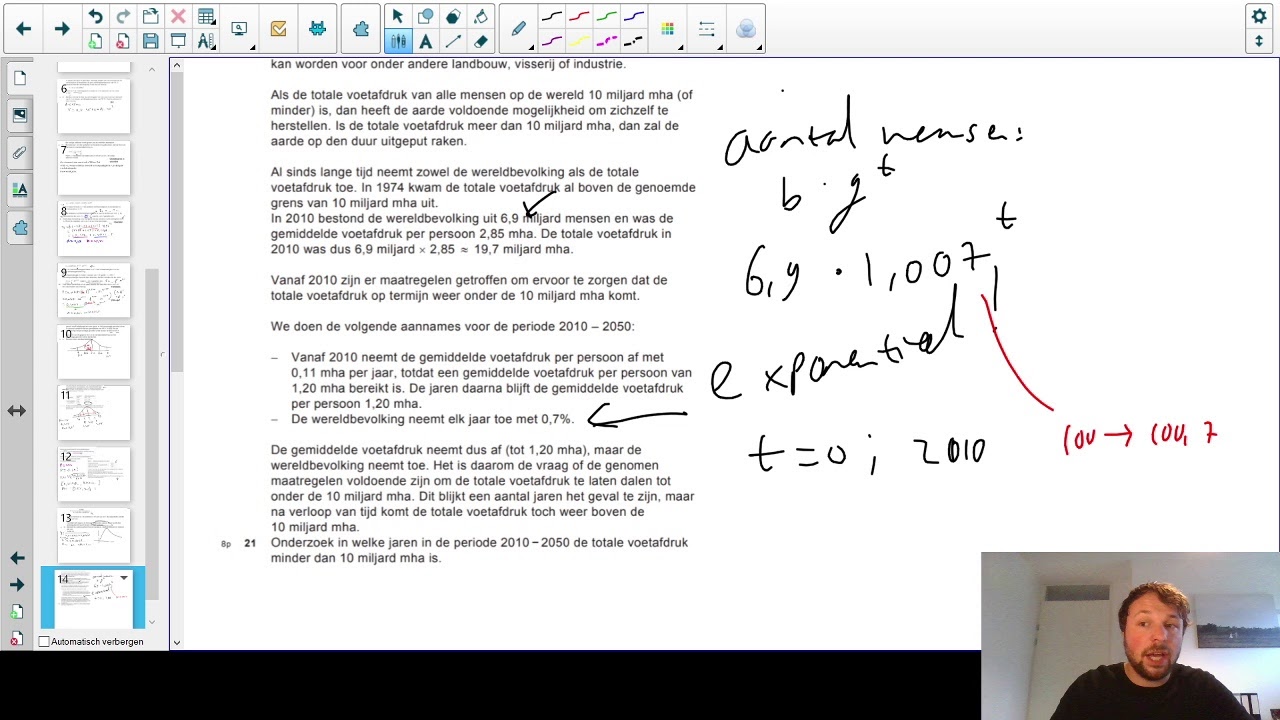 kan worden voor onder andere landbouw, visserij of industrie.
Als de totale voetafdruk van alle mensen op de wereld 10 miljard mha (of
minder) is, dan heeft de aarde voldoende mogelijkheid om zichzelf te
herstellen. Is de totale voetafdruk meer dan 10 miljard mha, dan zal de
aarde op den duur uitgeput raken.
Al sinds lange tijd neemt zowel de wereldbevolking als de totale
voetafdruk toe. In 1974 kwam de totale voetafdruk al boven de genoemde
grens van 10 miljard mha uit.
In 2010 bestond de wereldbevolking uit 6,9 miljard mensen en was de
gemiddelde voetafdruk per persoon 2,85 mha. De totale voetafdruk in
2010 was dus 6,9 miljard × 2,85 ≈ 19,7 miljard mha.
Vanaf 2010 zijn er maatregelen getroffen om ervoor te zorgen dat de
totale voetafdruk op termijn weer onder de 10 miljard mha komt.
We doen de volgende aannames voor de periode 2010 – 2050:
– Vanaf 2010 neemt de gemiddelde voetafdruk per persoon af met
0,11 mha per jaar, totdat een gemiddelde voetafdruk per persoon van
1,20 mha bereikt is. De jaren daarna blijft de gemiddelde voetafdruk
per persoon 1,20 mha.
– De wereldbevolking neemt elk jaar toe met 0,7%.
De gemiddelde voetafdruk neemt dus af (tot 1,20 mha), maar de
wereldbevolking neemt toe. Het is daarom de vraag of de genomen
maatregelen voldoende zijn om de totale voetafdruk te laten dalen tot
onder de 10 miljard mha. Dit blijkt een aantal jaren het geval te zijn, maar
na verloop van tijd komt de totale voetafdruk toch weer boven de
10 miljard mha.
8p 21 Onderzoek in welke jaren in de periode 2010 – 2050 de totale voetafdruk
minder dan 10 miljard mha is.
aantal mensen:
b · g^t
6,9 · 1,007^t
exponentieel
t = 0 ; 2010
100 → 100,7
6
7
8
9
10
11
12
13
14
Automatisch verbergen